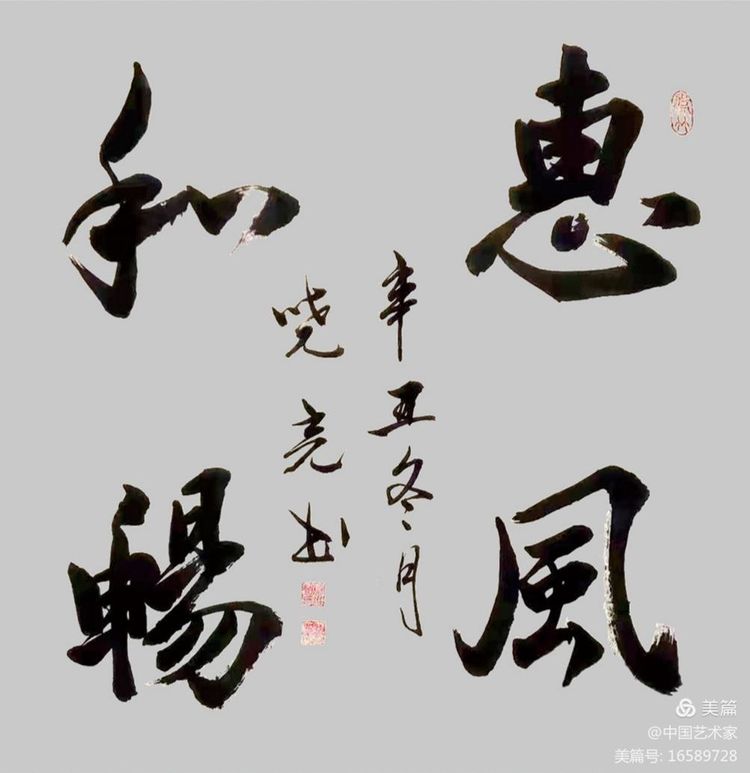 惠風
和暢
辛丑冬月
晓亮书
美篇
@中国艺术家
美篇号: 16589728